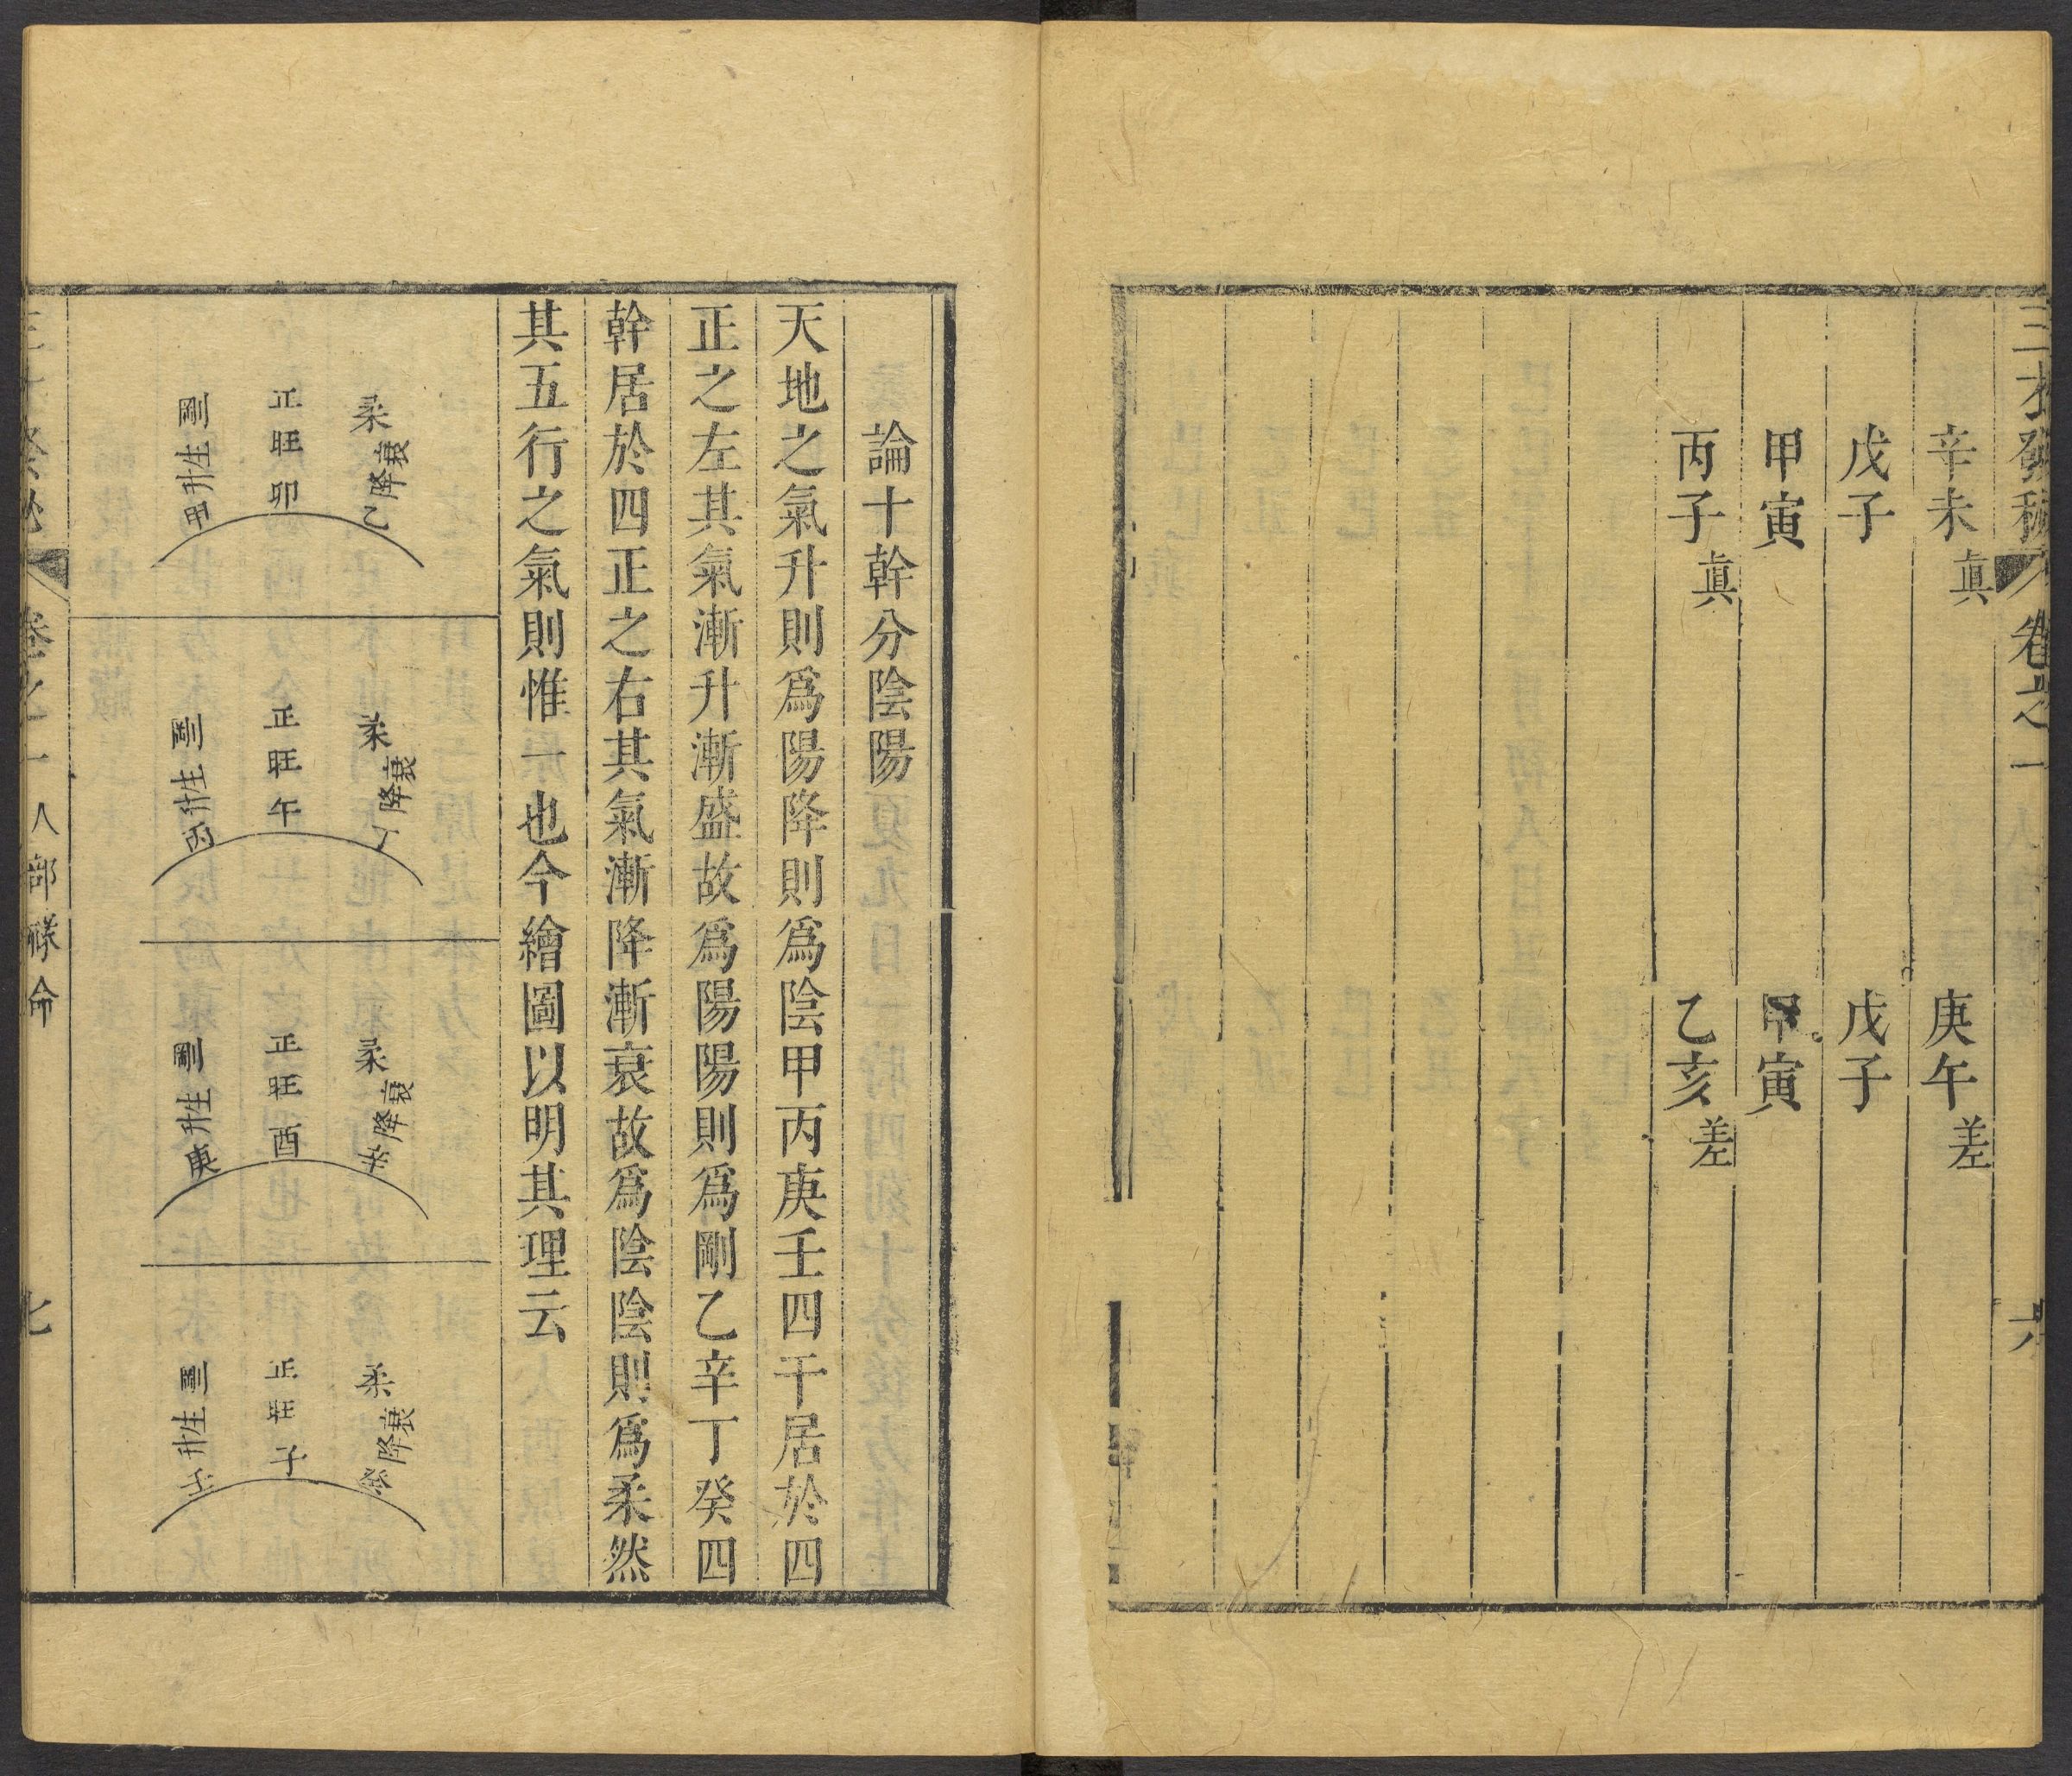 三才發秘
卷之一
六
辛未眞
庚午差
戊子
戊子
甲寅
甲寅
丙子眞
乙亥差
論十幹分陰陽
天地之氣升則爲陽降則爲陰甲丙庚壬四干居於四
正之左其氣漸升漸盛故爲陽陽則爲剛乙辛丁癸四
幹居於四正之右其氣漸降漸衰故爲陰陰則爲柔然
其五行之氣則惟一也今繪圖以明其理云
柔
衰降乙
正旺卯
剛
生升甲
柔
衰降丁
正旺午
剛
生升丙
柔
衰降辛
正旺酉
剛
生升庚
柔
衰降癸
正旺子
剛
生升壬
卷之一
人部祿命
七